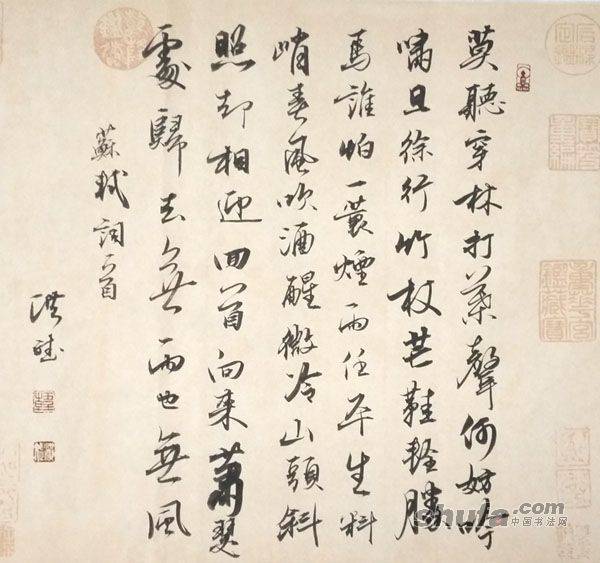 莫聽穿林打葉聲何妨吟
嘯且徐行竹杖芒鞋輕勝
馬誰怕一蓑煙雨任平生料
峭春風吹酒醒微冷山頭斜
照却相迎回首向來蕭瑟
處歸去無雨也無風
蘇軾詞一首
洪
shufa.com
中国书法网